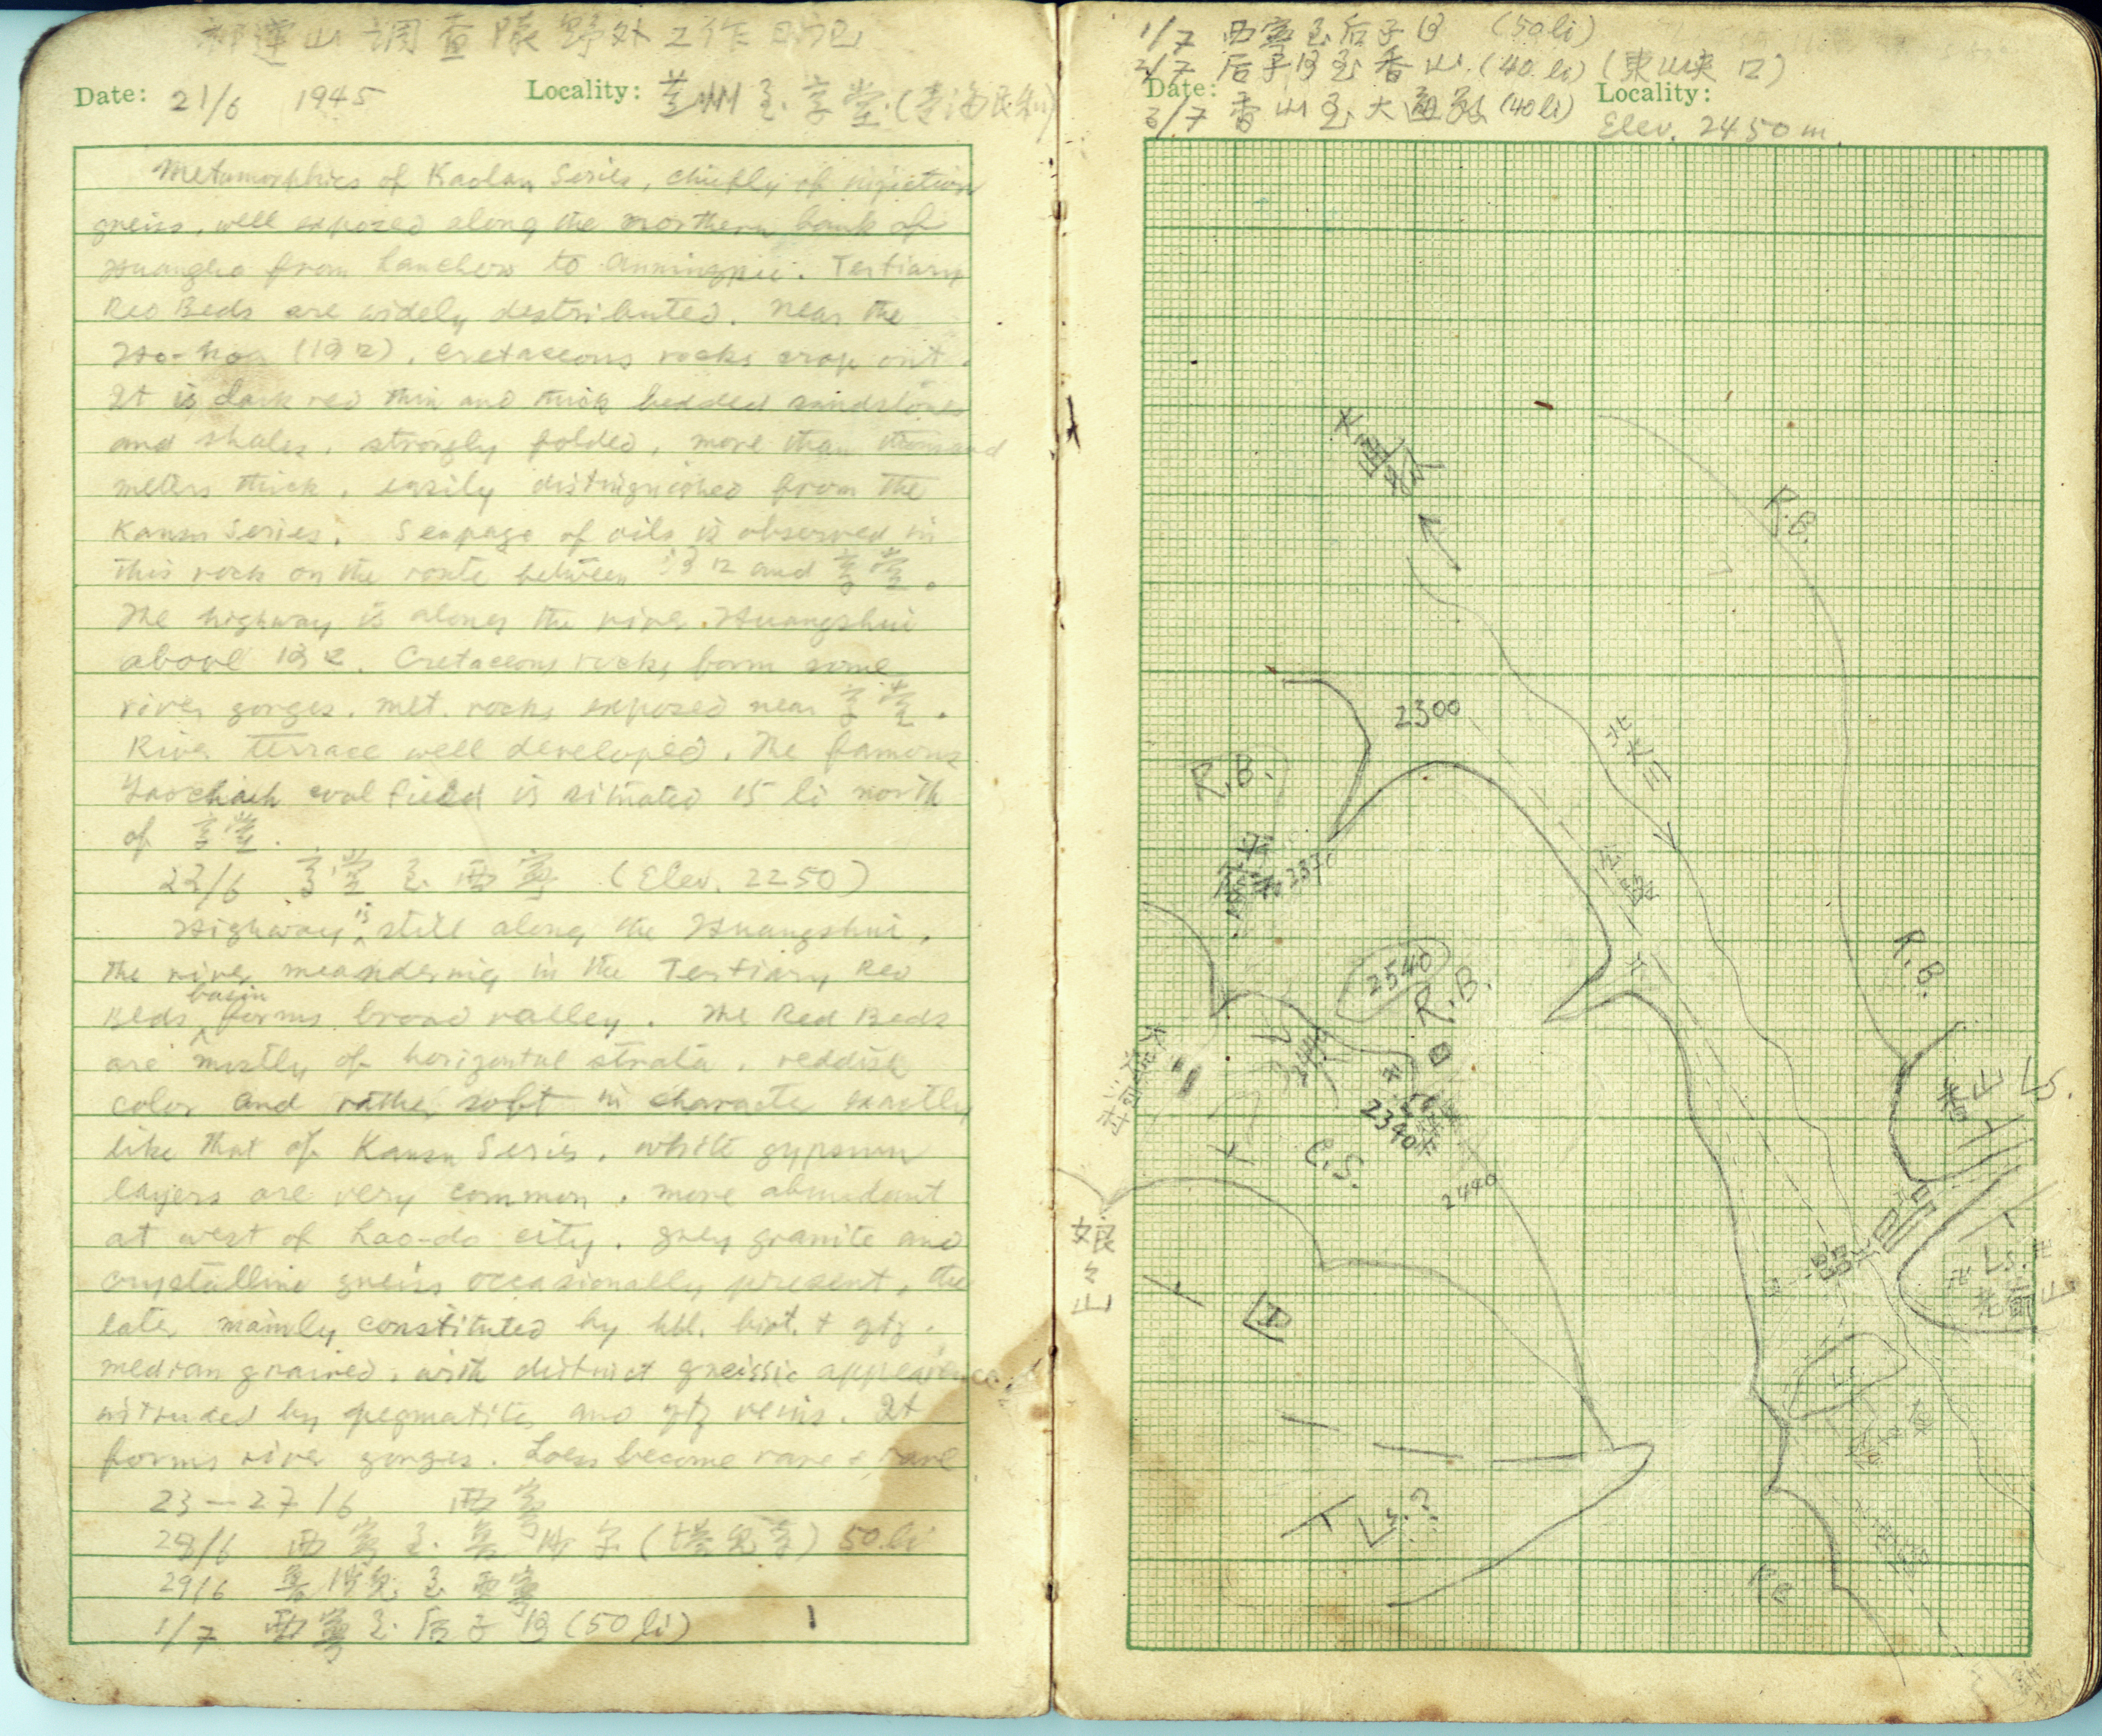 祁連山調查隊野外工作日記
Date: 21/6 1945 Locality: 兰州至享堂(青海民和)
Metamorphics of Kaolan Series, chiefly of injection
gneiss, well exposed along the northern bank of
Huangho from Lanchow to Anningpu. Tertiary
Red Beds are widely destributed. Near the
Ho-kou (河口), cretaceous rocks crop out.
It is dark red thin and thick bedded sandstones
and shales, strongly folded, more than thousand
meters thick, easily distinguished from the
Kansu Series. Seepage of oils is observed in
this rock on the route between 河口 and 享堂.
The highway is along the river Huangshui
above 河口. Cretaceous rocks form some
river gorges. Met. rocks exposed near 享堂.
River terrace well developed. The famous
Yaochieh coal field is situated 15 li north
of 享堂.
22/6 享堂至西寧 (Elev. 2250)
Highway is still along the Huangshui,
the river meandering in the Tertiary Red
Beds basin forms broad valley. The Red Beds
are mostly of horizontal strata, reddish
color and rather soft in character exactly
like that of Kansu Series. White gypsum
layers are very common, more abundant
at west of Lao-do city. Grey granite and
crystalline gneiss occasionally present, the
later mainly constituted by hbl. biot. + qtz.
median grained, with distinct gneissic appearance,
intruded by pegmatite and qtz veins. It
forms river gorges. Loess become rare & rare
23—27/6 西寧
28/6 西寧至 50 li
29/6 至西寧
1/7 西寧至后子河 (50 li)
1/7 西寧至后子河 (50 li)
2/7 后子河至香山 (40 li) (東山峡口)
Date: Locality:
3/7 香山至大通 (40 li) Elev. 2450 m.
大通
R.B.
2300
北大
R.B.
公路
2540
R.B.
R.B.
香山 Ls.
2340
C.S.
2440
娘々山
Ls.
老爺山
Ls.
Ls.?
R.B.